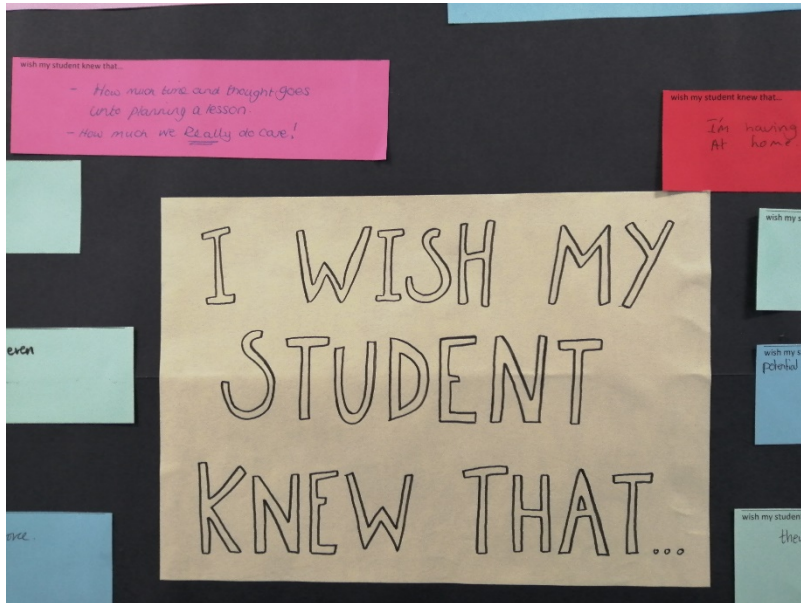 wish my student knew that...
- How much time and thought goes
into planning a lesson
- How much we Really do care!
wish my student knew that...
I'm having
At home
I WISH MY
STUDENT
KNEW THAT...
wish my s
even
wish my s
potential
wish my student